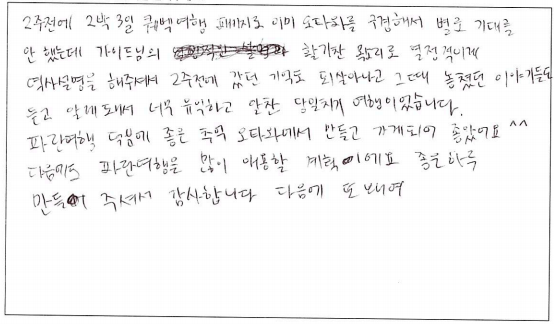 2주전에 2박 3일 퀘벡여행 패키지로 이미 오타와를 구경해서 별로 기대를
안 했는데 가이드님의 활기찬 목소리로 열정적이게
역사설명을 해주셔서 2주전에 갔던 기억도 되살아나고 그때 놓쳤던 이야기들도
듣고 알게되어서 너무 유익하고 알찬 당일치기 여행이었습니다.
파란여행 덕분에 좋은 추억 오타와에서 만들고 가게되어 좋았어요 ^^
다음에도 파란여행을 많이 애용할 계획이에요 좋은하루
만들어 주셔서 감사합니다 다음에 또 봬여